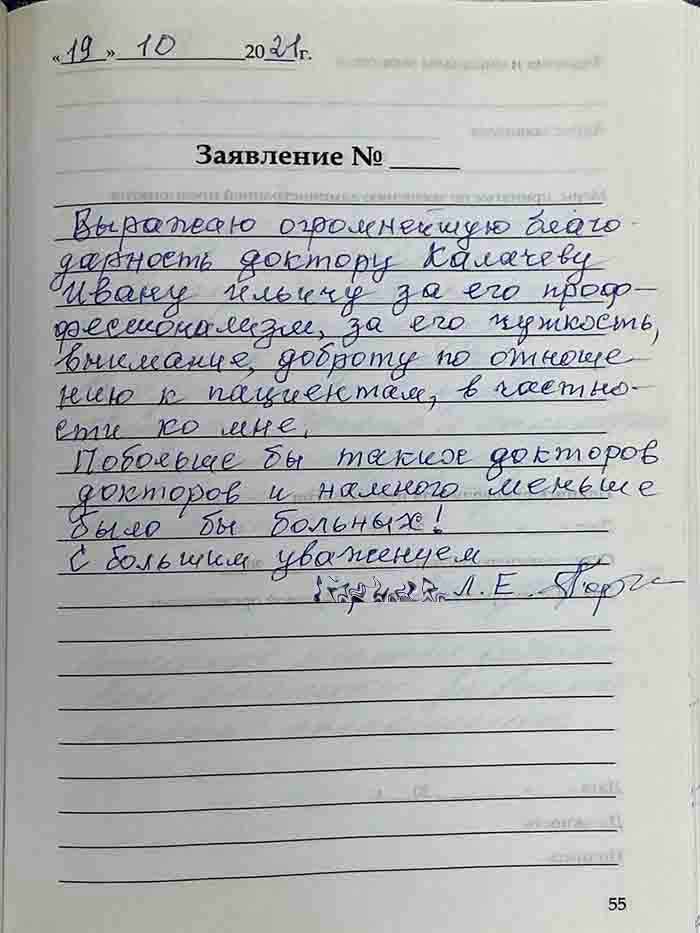 « 19 » 10 2021 г.
Заявление № ____
Выражаю огромнейшую благо-
дарность доктору Калачеву
Ивану Ильичу за его проф-
фессионализм, за его чужкость,
внимание, доброту по отноше-
нию к пациентам, в частно-
сти ко мне.
Побольше бы таких докторов
докторов и намного меньше
было бы больных!
С большим уважением
Л. Е.
55